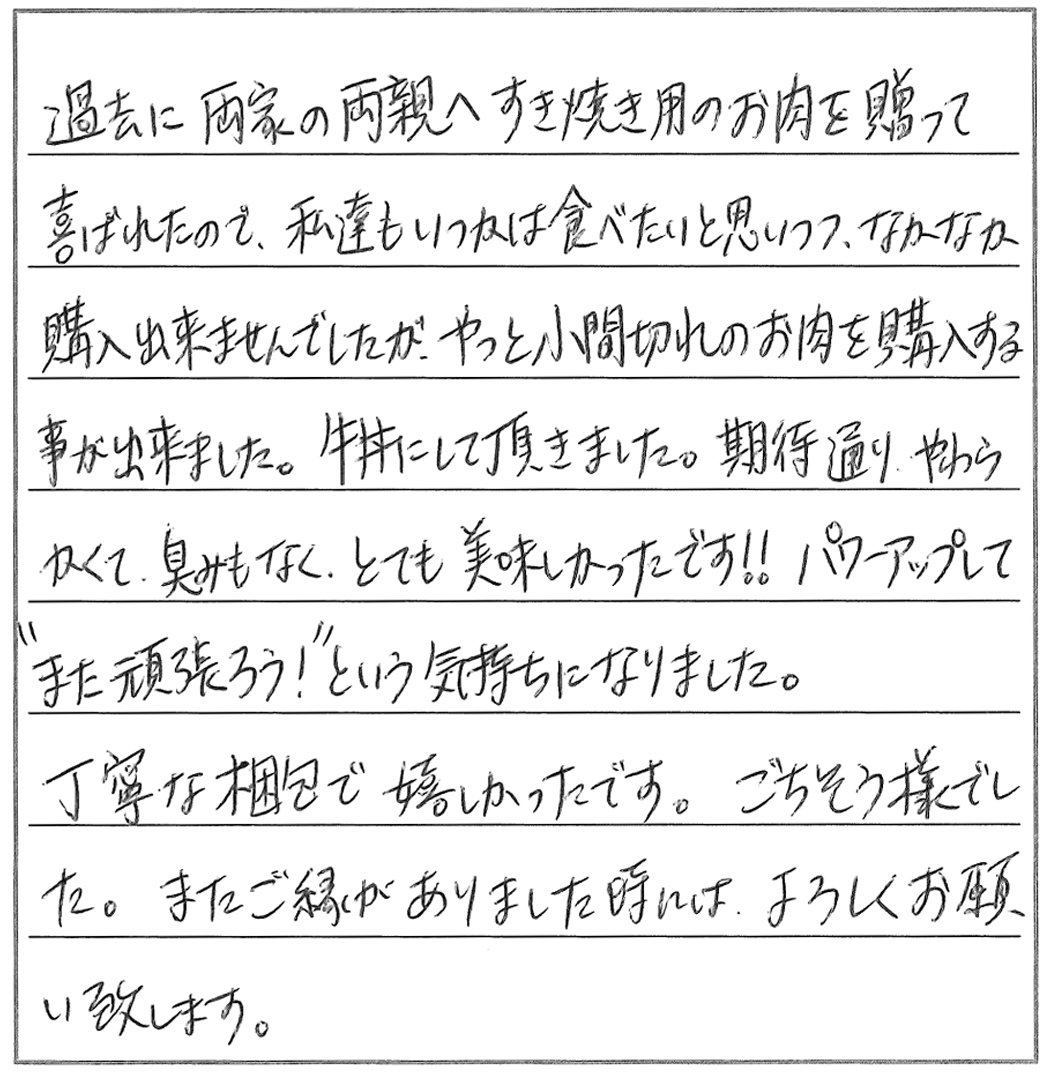 過去に両家の両親へすき焼き用のお肉を贈って
喜ばれたので、私達もいつかは食べたいと思いつつ、なかなか
購入出来ませんでしたが、やっと小間切れのお肉を購入する
事が出来ました。牛丼にして頂きました。期待通り、やわら
かくて、臭みもなく、とても美味しかったです!! パワーアップして
"また頑張ろう!"という気持ちになりました。
丁寧な梱包で嬉しかったです。ごちそう様でし
た。またご縁がありました時には、よろしくお願
い致します。